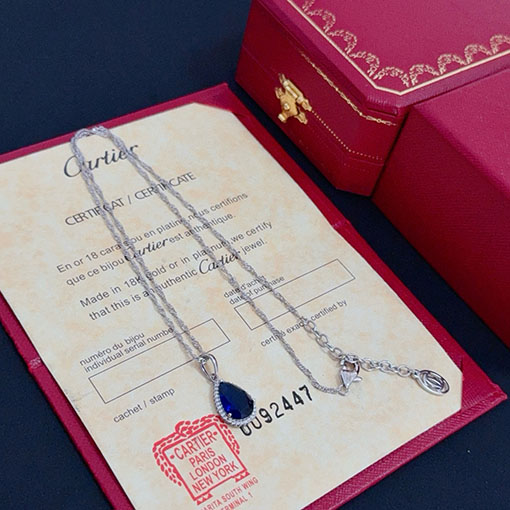 Cartier
CERTIFICAT / CERTIFICATE
En or 18 carats ou en platine, nous certifions
que ce bijou Cartier est authentique.
Made in 18K gold or in platinum, we certify
that this is an authentic Cartier jewel.
date d'achat
date of purchase
numéro du bijou
individual serial number
certifié exact / certified by
cachet / stamp
0092447
CARTIER
PARIS
LONDON
NEW YORK
NARITA SOUTH WING
TERMINAL 1